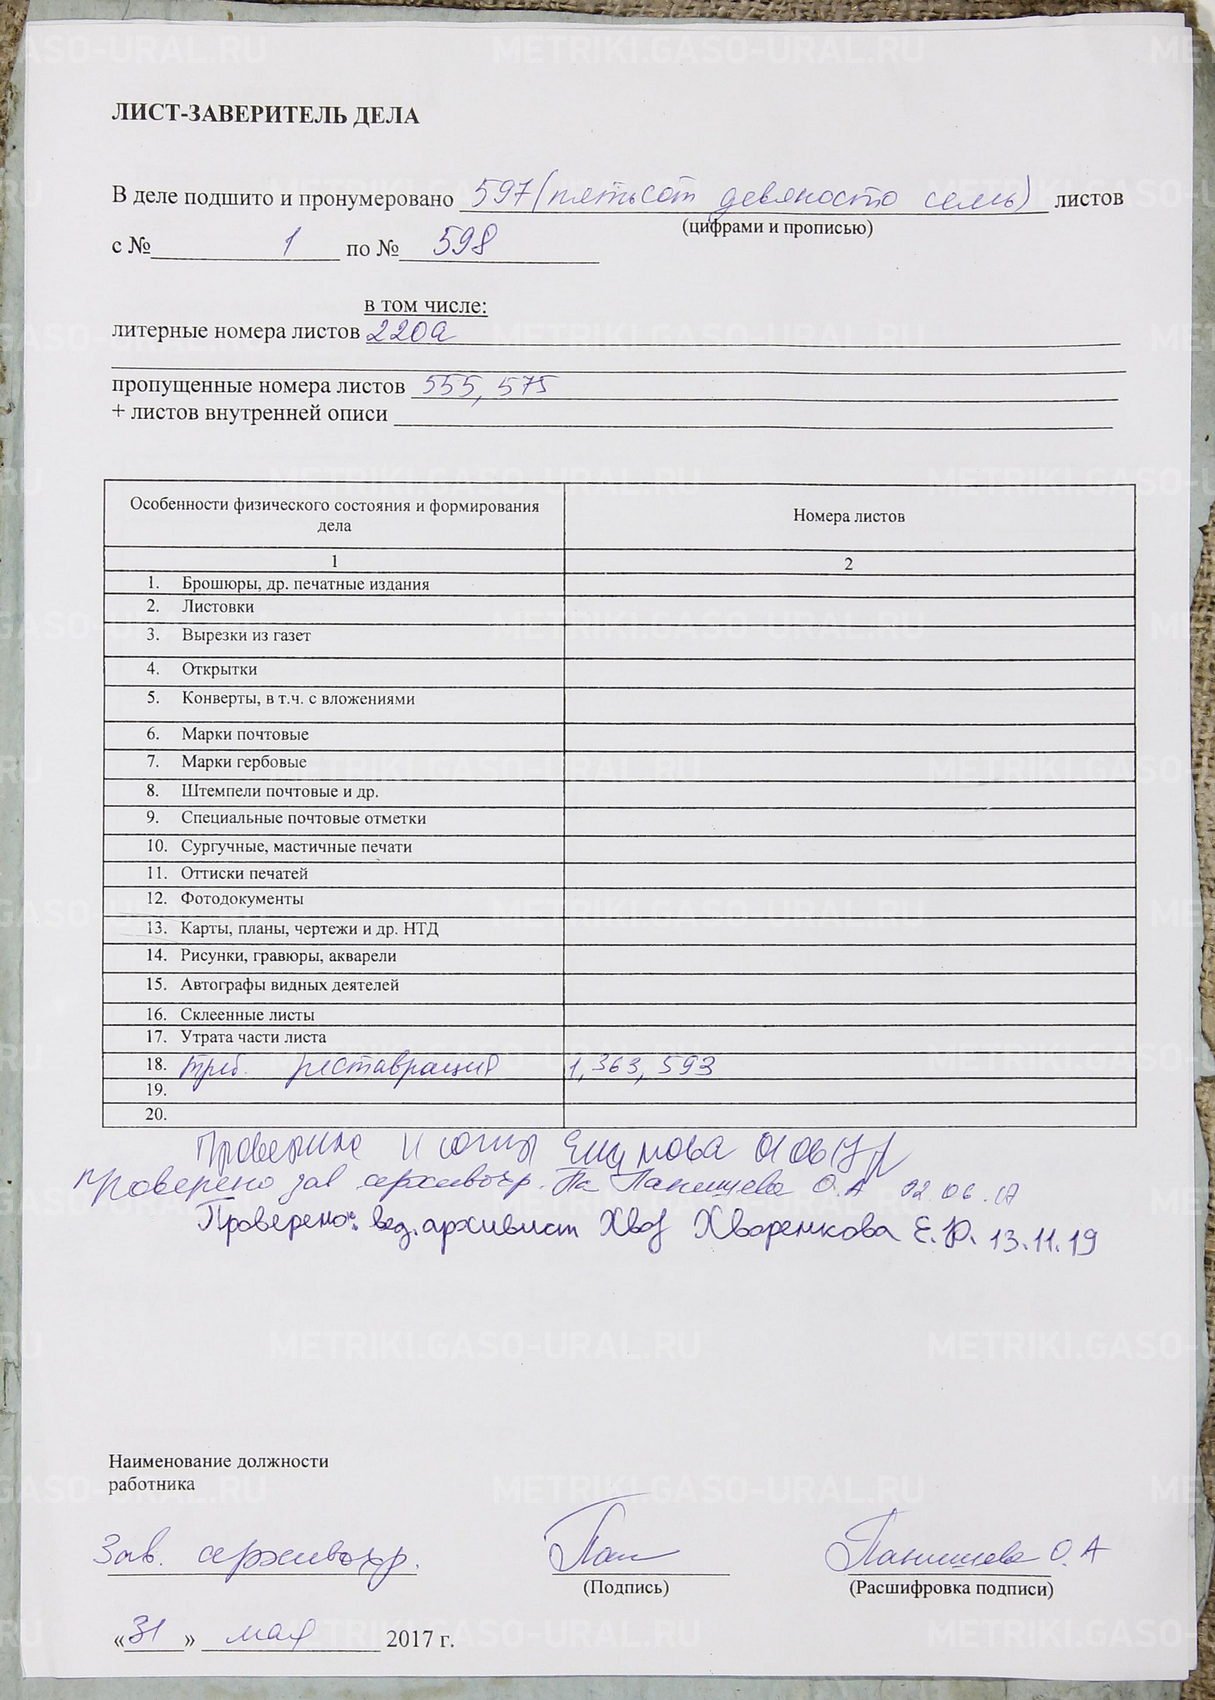 ЛИСТ-ЗАВЕРИТЕЛЬ ДЕЛА
В деле подшито и пронумеровано 597 (пятьсот девяносто семь) листов
(цифрами и прописью)
с № 1 по № 598
в том числе:
литерные номера листов 220а
пропущенные номера листов 555, 575
+ листов внутренней описи
Особенности физического состояния и формирования дела | Номера листов
1 | 2
1. Брошюры, др. печатные издания
2. Листовки
3. Вырезки из газет
4. Открытки
5. Конверты, в т.ч. с вложениями
6. Марки почтовые
7. Марки гербовые
8. Штемпели почтовые и др.
9. Специальные почтовые отметки
10. Сургучные, мастичные печати
11. Оттиски печатей
12. Фотодокументы
13. Карты, планы, чертежи и др. НТД
14. Рисунки, гравюры, акварели
15. Автографы видных деятелей
16. Склеенные листы
17. Утрата части листа
18. треб. реставрация 1, 363, 593
19.
20.
Проверила
Проверено зав архивохр. Па Панищева О.А 02.06.17
Проверено: вед. архивист Хваренкова Е.Ю. 13.11.19
Наименование должности
работника
Зав. архивохр. Панищева О.А
(Подпись) (Расшифровка подписи)
«31» мая 2017 г.
METRIKI.GASO-URAL.RU